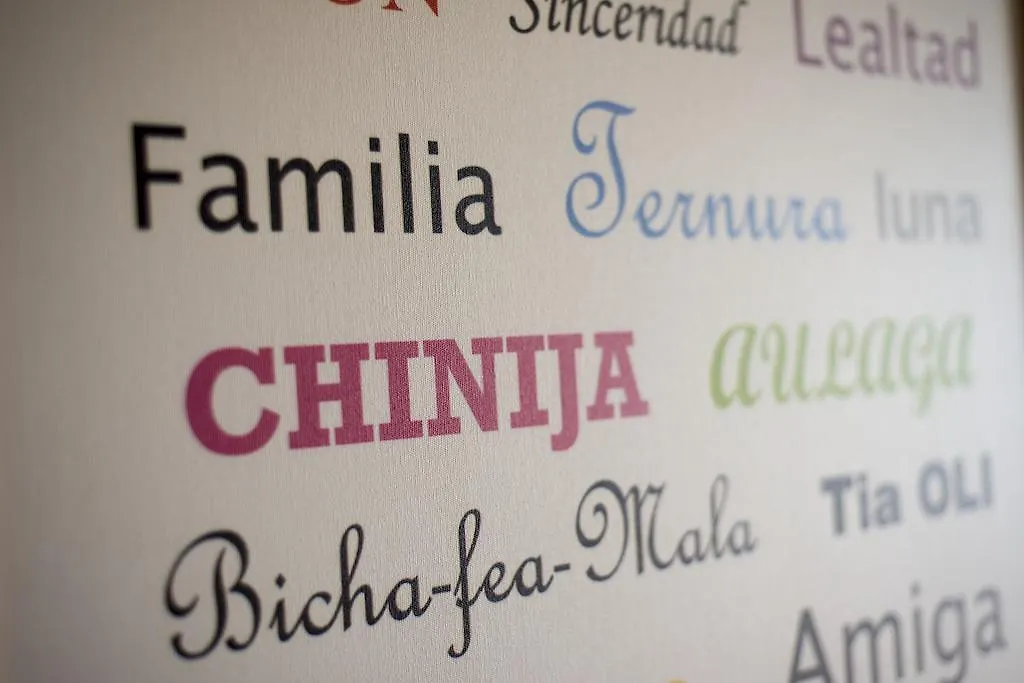 Sinceridad Lealtad
Familia Ternura luna
CHINIJA AULAGA
Bicha-fea-Mala Tia OLI
Amiga